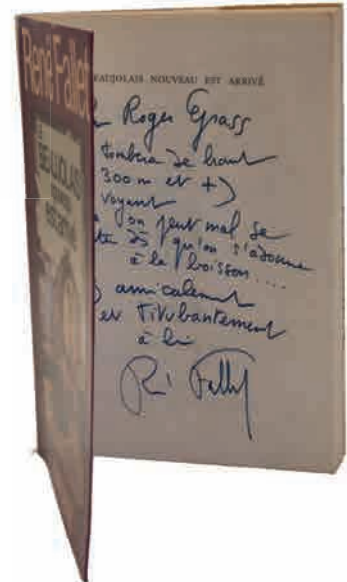 René Fallet
BEAUJOLAIS
EST ARRIVÉ
BEAUJOLAIS NOUVEAU EST ARRIVÉ
Roger Grass
tombera de haut
300m et +)
voyant
on peut mal se
dès qu'on s'adonne
à la boisson....
amicalement
et titubantement
à lui
René Fallet